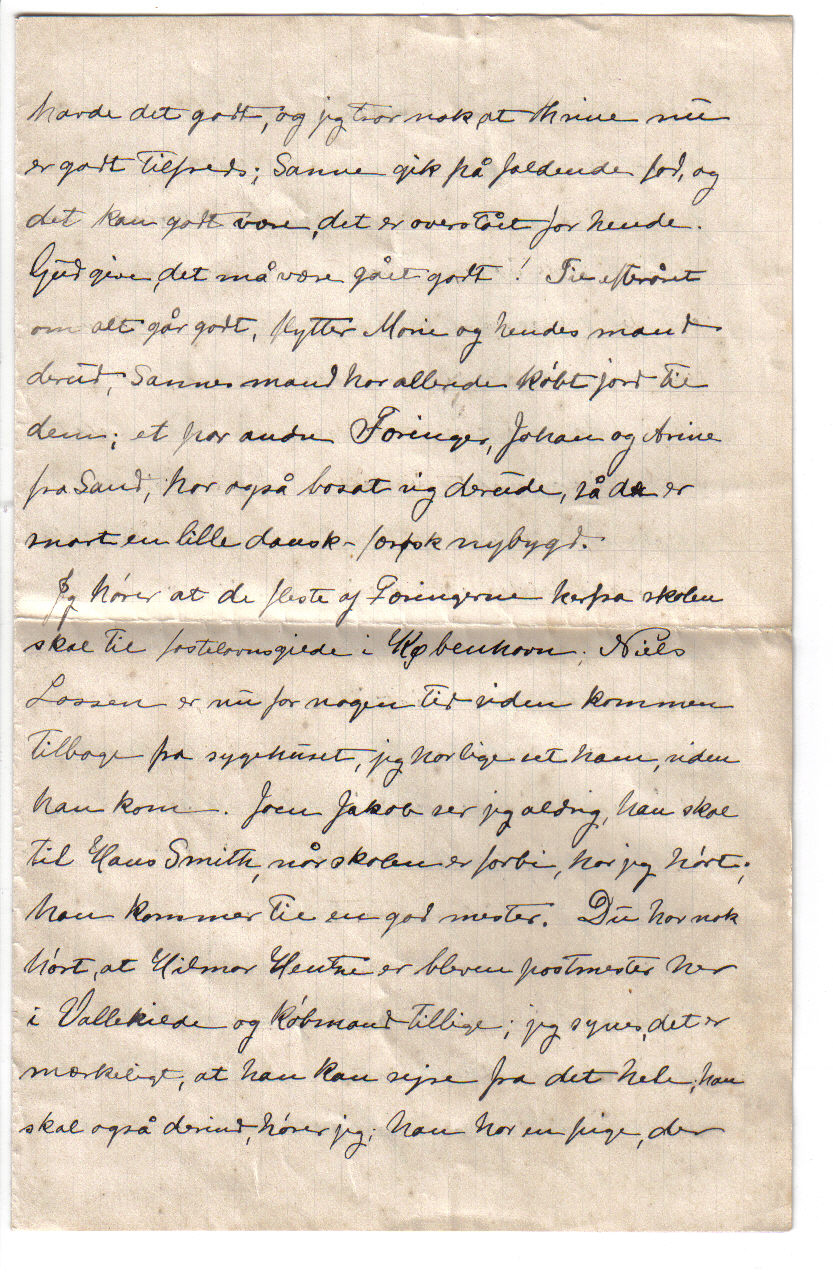 havde det godt, og jeg tror nok, at Thrine nu
er godt tilfreds; Sanne gik på faldende fod, og
det kan godt være, det er overstået for hende.
Gud give, det må være gået godt! Til efteråret
om alt går godt, flytter Marie og hendes mand
derud; Sannes mand har allerede købt jord til
dem; et par andre Færinger, Johan og Arine
fra Sand, har også bosat sig derude, så der er
snart en lille dansk-færøsk nybygd.
Jeg hører at de fleste af Færingerne herfra skolen
skal til fastelavnsgilde i København. Niels
Lassen er nu for nogen tid siden kommen
tilbage fra sygehuset, jeg har lige set ham, siden
han kom. Joen Jakob ser jeg aldrig, han skal
til Hans Smith, når skolen er forbi, har jeg hørt;
han kommer til en god mester. Du har nok
hørt, at Hilmar er bleven postmester her
i Vallekilde og købmand tillige; jeg synes, det er
mærkeligt, at han kan rejse fra det hele, han
skal også derind, hører jeg; han har en pige, der